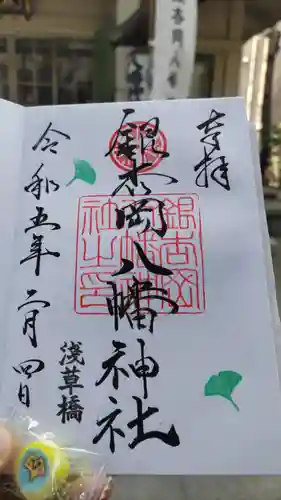 奉拝
銀杏岡八幡神社
浅草橋
令和五年二月四日
銀杏岡
八幡神
社之印